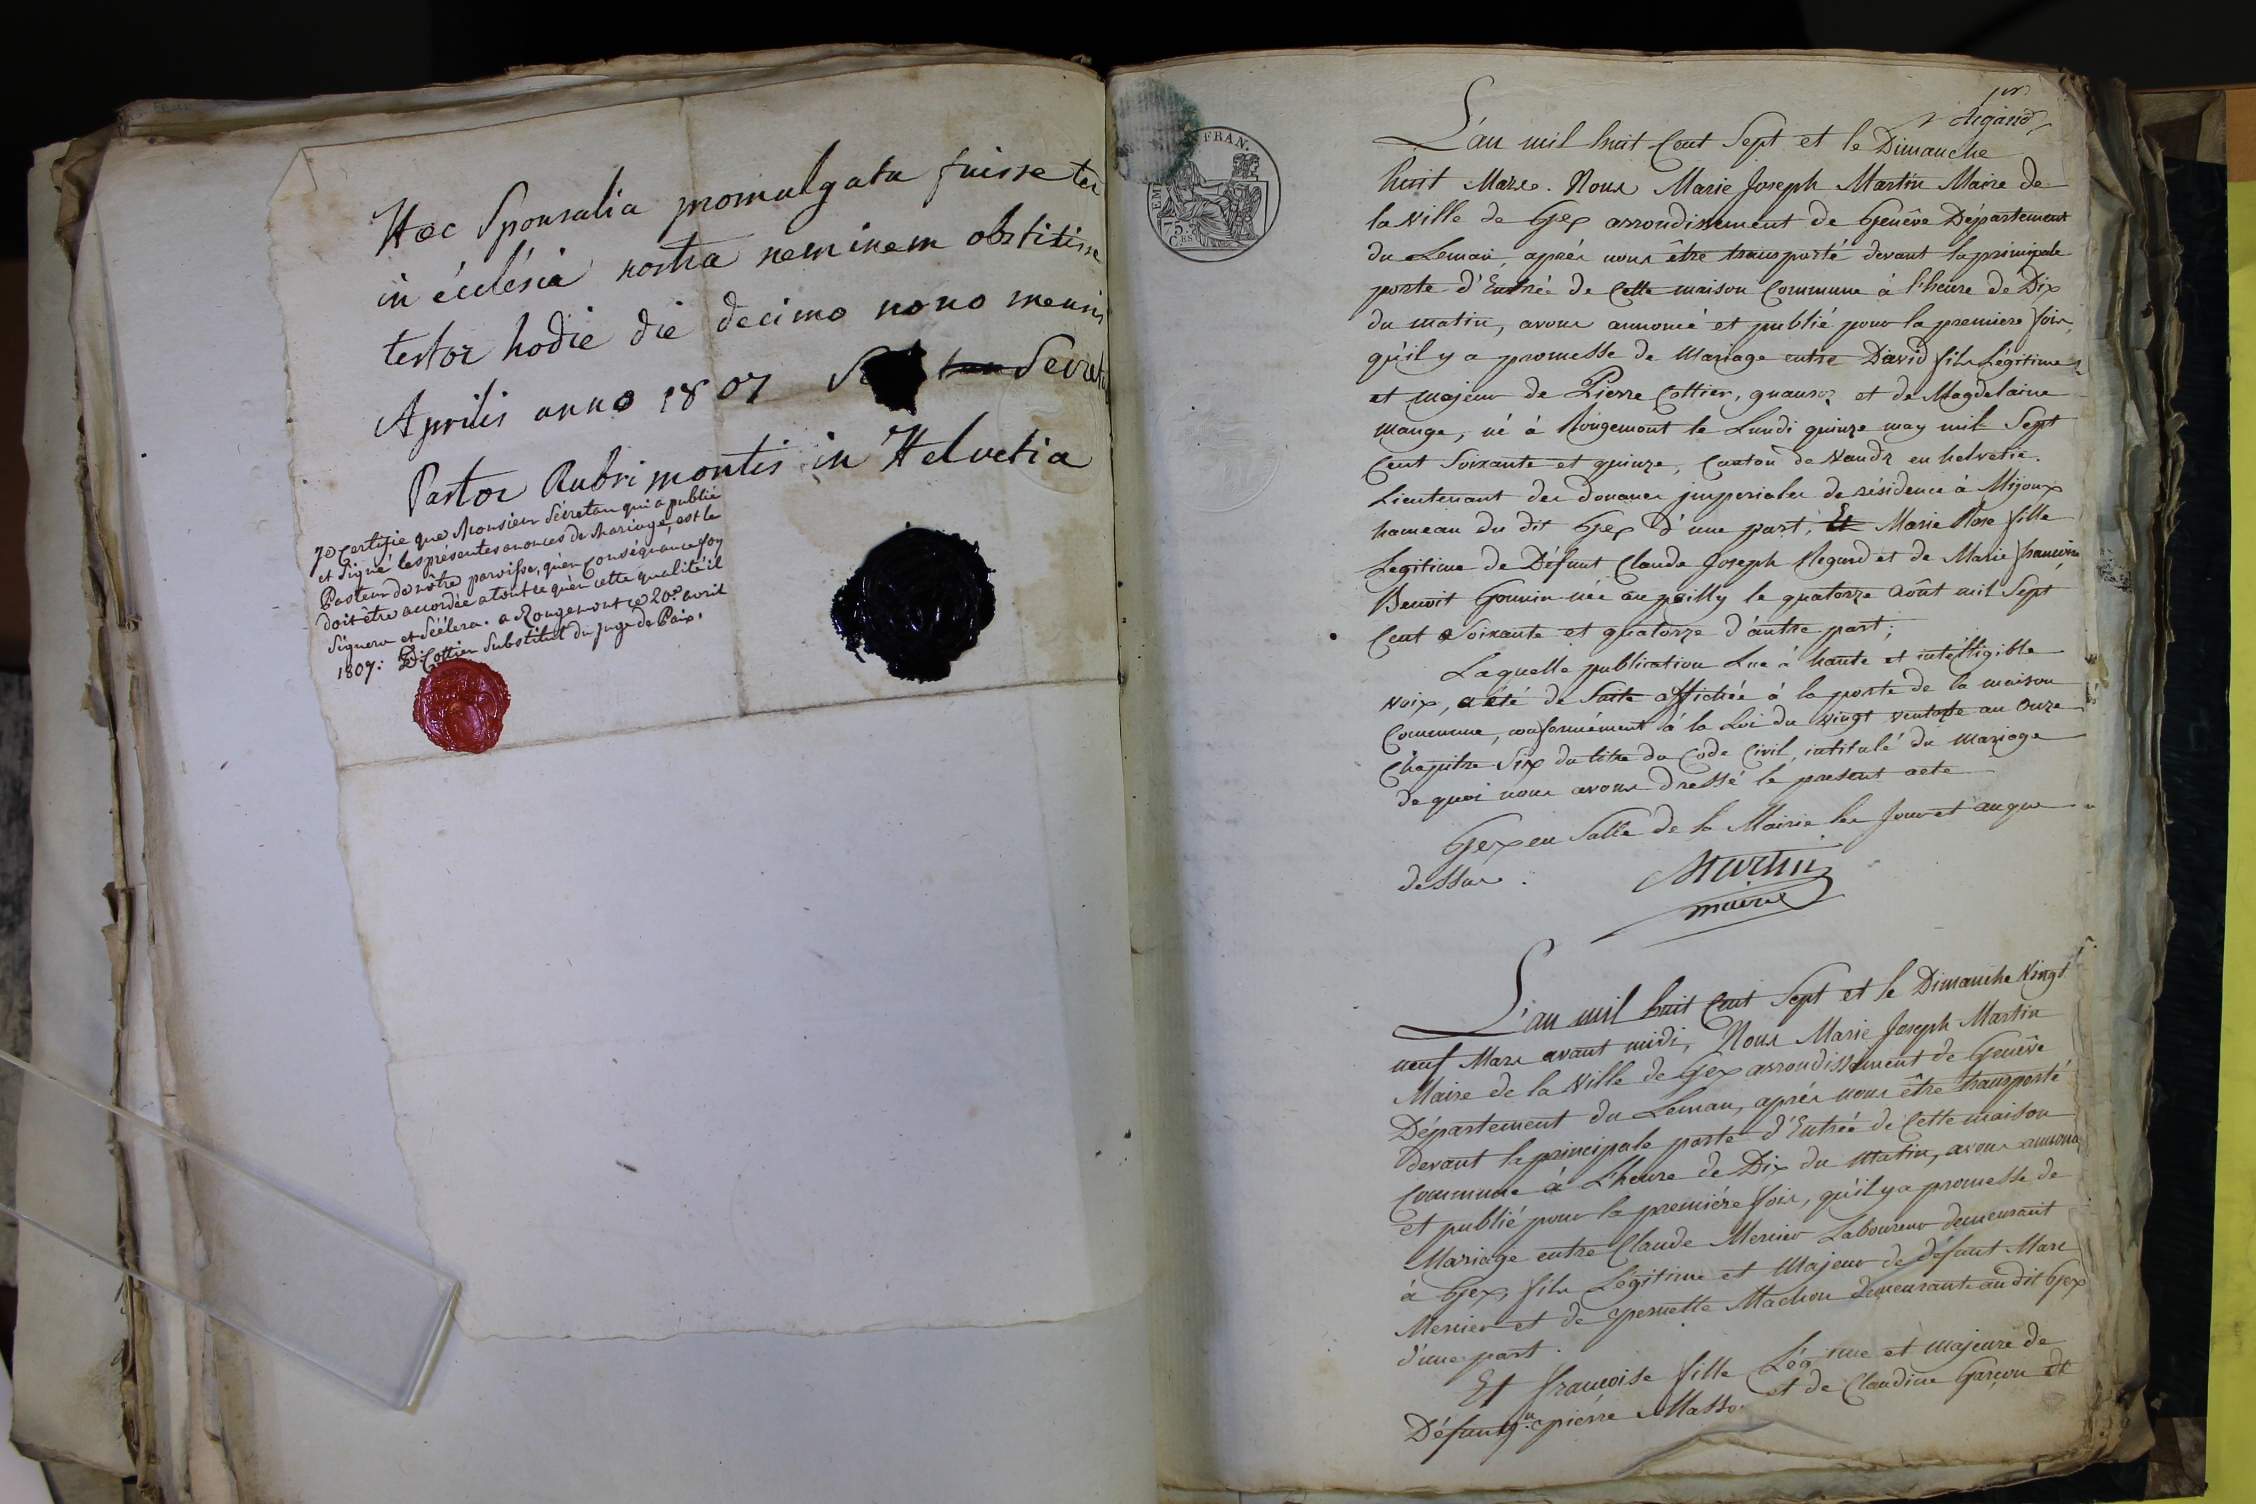 Hæc Sponsalia promulgata fuisse ter
in écclésia nostra neminem obstitisse
testor hodie die decimo nono mensis
Aprilis anno 1807 Secreta
Pastor Rubri montis in Helvetia
Je certifie que Monsieur Secretan qui a publié
et signé les présentes anonces de Mariage, est le
Pasteur de nôtre paroisse, qu'en conséquence foy
doit être accordée a tout ce qu'en cette qualité il
signera et séélera. a Rougemont ce 20e avril
1807: D: Cottier Substitut du Juge de Paix.
EMP. FRAN.
75.
CES
L'an mil huit Cent Sept et le Dimanche
huit Mars. Nous Marie Joseph Martin Maire de
la Ville de Gex arrondissement de Genêve Département
du Leman, aprés nous être transporté devant la principale
porte d'Entrée de Cette maison Commune à l'heure de Dix
du matin, avons annoncé et publié pour la premiere fois,
qu'il y a promesse de Mariage entre David fils Légitime
et majeur de Pierre Cottier, et de Magdelaine
Mange, né à Rougemont le Lundi quinze may mil Sept
Cent Soixante et quinze, Canton de Vaud en helvetie.
Lieutenant des douanes imperiales de résidence à Mijoux
hameau du dit Gex d'une part, Et Marie Rose fille
Legitime de Défunt Claude Joseph Regard et de Marie françoise
Benoit Gounin née au poilly le quatorze Août mil Sept
Cent Soixante et quatorze d'autre part;
Laquelle publication Lue à haute et intélligible
Voix, a été de Suite affichée à la porte de la maison
Commune, conformément à la Loi du vingt ventose an Onze
Chapitre Six du titre du Code Civil, intitulé du Mariage
de quoi nous avons dressé le present acte
Gex en Salle de la Mairie les Jour et an que
dessus.
Martin
maire
L'an mil huit Cent Sept et le Dimanche Vingt
neuf Mars avant midi, Nous Marie Joseph Martin
Maire de la Ville de Gex arrondissement de Genêve
Département du Leman, aprés nous être transporté
devant la principale porte d'Entrée de Cette maison
Commune à L'heure de Dix du Matin, avons annoncé
et publié pour la premiére fois, qu'il y a promesse de
Mariage entre Claude Mercier Laboureur demeurant
à Gex, fils Légitime et Majeur de défunt Marc
Mercier et de pernette Machon demeurante au dit Gex
d'une part.
Et françoise fille et majeure de
Défunt pierre et de Claudine Garçon et